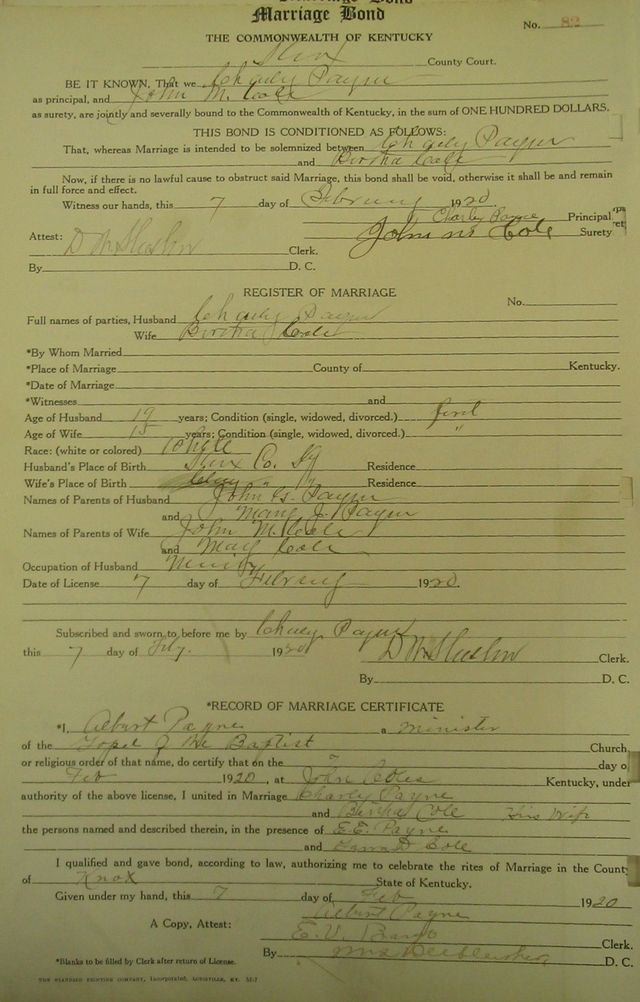 Marriage Bond
Marriage Bond
No. 82
THE COMMONWEALTH OF KENTUCKY
Knox County Court.
BE IT KNOWN, That we Charley Payne
as principal, and John M. Cole
as surety, are jointly and severally bound to the Commonwealth of Kentucky, in the sum of ONE HUNDRED DOLLARS.
THIS BOND IS CONDITIONED AS FOLLOWS:
That, whereas Marriage is intended to be solemnized between Charley Payne
and Bertha Cole
Now, if there is no lawful cause to obstruct said Marriage, this bond shall be void, otherwise it shall be and remain
in full force and effect.
Witness our hands, this 7 day of February 1920.
Charley Payne Principal
John M Cole Surety
Attest: Clerk.
By D. C.
REGISTER OF MARRIAGE
No.
Full names of parties, Husband Charley Payne
Wife Bertha Cole
*By Whom Married
*Place of Marriage County of Kentucky.
*Date of Marriage
*Witnesses and
Age of Husband 19 years; Condition (single, widowed, divorced.) first
Age of Wife 15 years; Condition (single, widowed, divorced.) "
Race: (white or colored) White
Husband's Place of Birth Knox Co. Ky Residence
Wife's Place of Birth " " Residence
Names of Parents of Husband John G. Payne
and Mary J. Payne
Names of Parents of Wife John M. Cole
and Mary Cole
Occupation of Husband
Date of License 7 day of February 1920.
Subscribed and sworn to before me by Charley Payne
this 7 day of Feby. 1920
Clerk.
By D. C.
*RECORD OF MARRIAGE CERTIFICATE
*I, Albert Payne a minister
of the Gospel of the Baptist Church,
or religious order of that name, do certify that on the 7 day of
Feb 1920, at John Coles Kentucky, under
authority of the above license, I united in Marriage Charly Payne
and Bertha Cole His Wife
the persons named and described therein, in the presence of E.E. Payne
and Cole
I qualified and gave bond, according to law, authorizing me to celebrate the rites of Marriage in the County
of Knox State of Kentucky.
Given under my hand, this 7 day of Feb 1920
Albert Payne
A Copy, Attest: E. V. Bargo Clerk.
By Mrs D. C.
*Blanks to be filled by Clerk after return of License.
THE STANDARD PRINTING COMPANY, Incorporated, LOUISVILLE, KY.